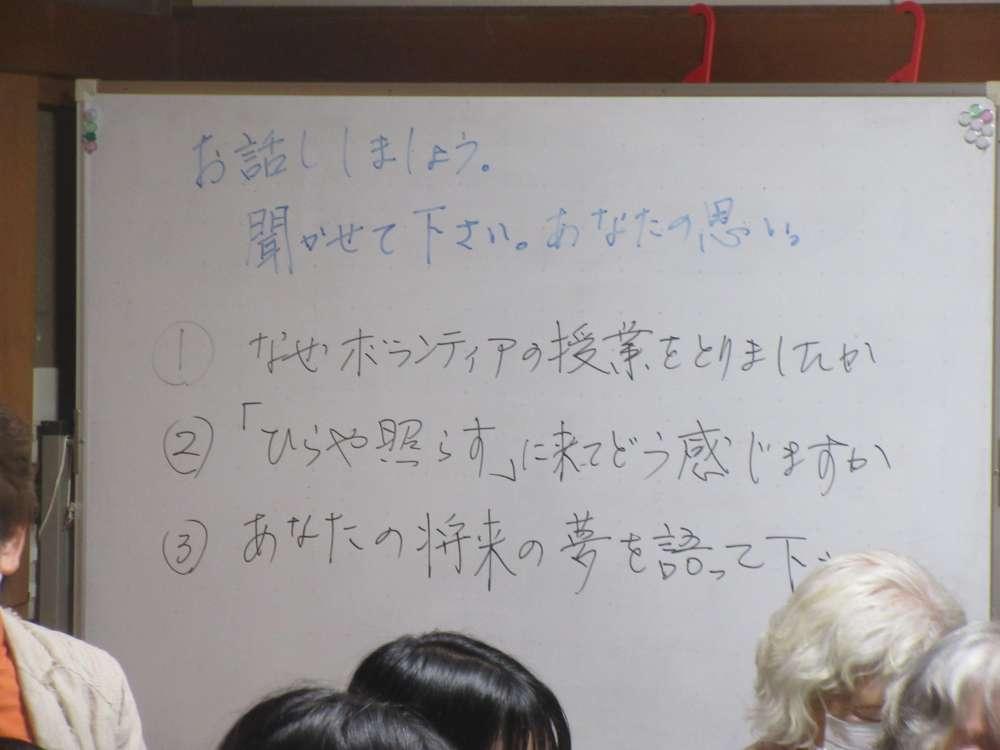 お話ししましょう。
聞かせて下さい。あなたの思い。
① なぜボランティアの授業をとりましたか
② 「ひらや照らす」に来てどう感じますか
③ あなたの将来の夢を語って下